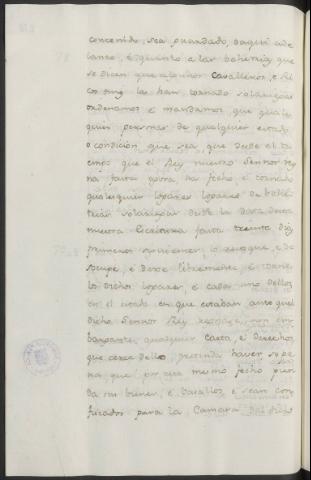 contenido, sea guardado, daqui ade
lante, é quanto a las behetrias que
se dicen que algunos Cavalleros, e Ri
cos omes las han tomado solariegas
ordenamos e mandamos que quales
quier personas de qualquier estado,
o condicion que sea, que desde el ti
empo que el Rey nuestro Señor rey
na fasta agora, ha fecho é tomado
qualesquier logares logares de behe
trias solariegos desde la data desta
nuestra Escritura fasta treinta dias
primeros siguientes, lo revoque, e de
socupe, é dexe libremente, é torne
los dichos logares, é cada uno dellos
en el estado en que estaban ante quel
dicho Señor Rey reynase, non em
bargante qualquier Carta, é derechos
que cerca dello pretenda haver so pe
na, que por ese mesmo fecho pier
da sus bienes, é vasallos, e sean con
fiscados para la Camara del dicho